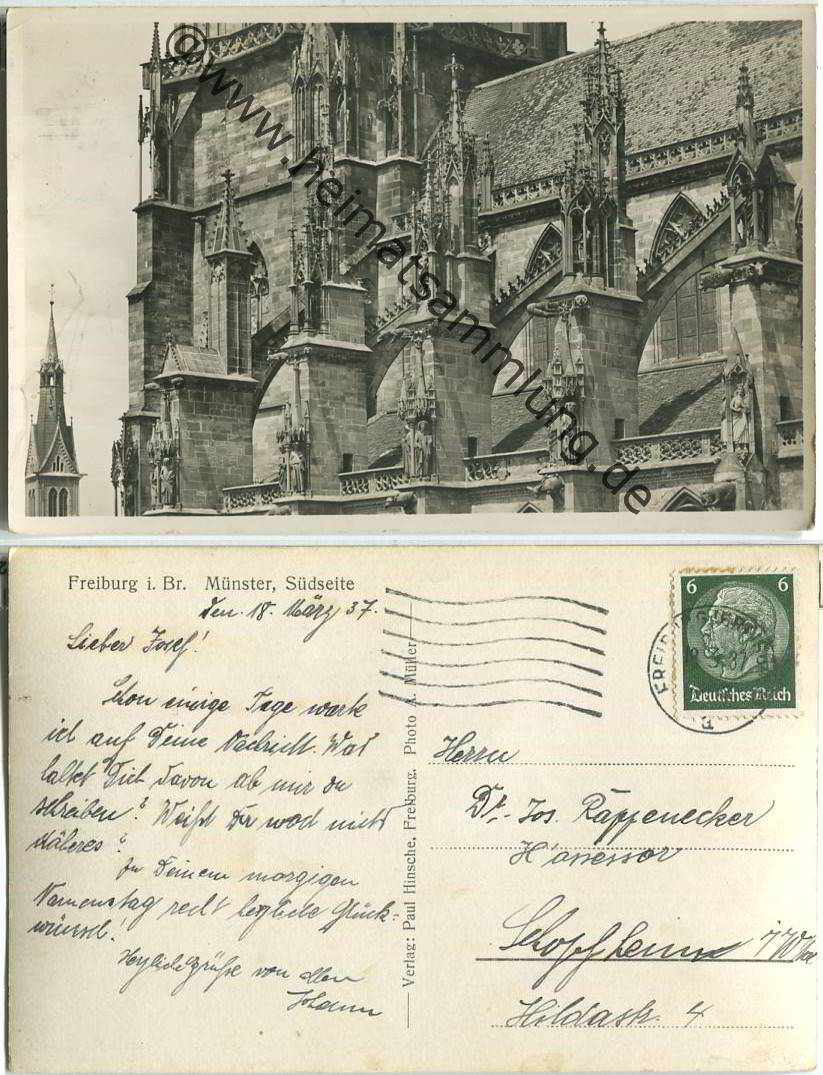 ©www.heimatsammlung.de
Freiburg i. Br. Münster, Südseite
Den. 18. März 37.
Lieber Josef!
Schon einige Tage warte
ich auf Deine Nachricht. Was
hältst Dich davon ab mir zu
schreiben? Weißt Du noch nichts
Näheres?
Zu Deinem morgigen
Namenstag recht herzliche Glück-
wünsche!
Herzliche Grüße von allen
Verlag: Paul Hinsche, Freiburg. Photo A. Müller
6 6
Deutsches Reich
Herrn
Dr. Jos. Räppenecker
Schopfheim i/W
Hildastr. 4